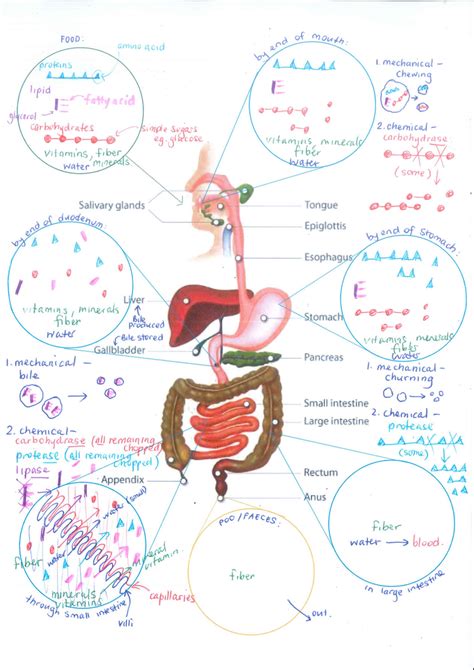 FOOD:
amino acid
proteins
lipid
fatty acid
glycerol
carbohydrates
simple sugars
eg. glucose
vitamins, fiber
water minerals
by end of mouth:
vitamins, minerals
fiber
water
1. mechanical -
chewing
2. chemical -
carbohydrase
(some)
Salivary glands
Tongue
Epiglottis
Esophagus
Liver
Stomach
Gallbladder
Pancreas
Small intestine
Large intestine
Appendix
Rectum
Anus
by end of duodenum:
vitamins, minerals
fiber
water
Bile
produced
Bile stored
by end of stomach:
vitamins, minerals
fiber
water
1. mechanical -
bile
2. chemical -
carbohydrase (all remaining
chopped)
protease (all remaining
chopped)
lipase
1. mechanical -
churning
2. chemical -
protease
(some)
water (small)
water
fiber
mineral
vitamin
minerals
vitamins
capillaries
villi
through small intestine
POO/FAECES:
fiber
out.
fiber
water → blood.
in large intestine